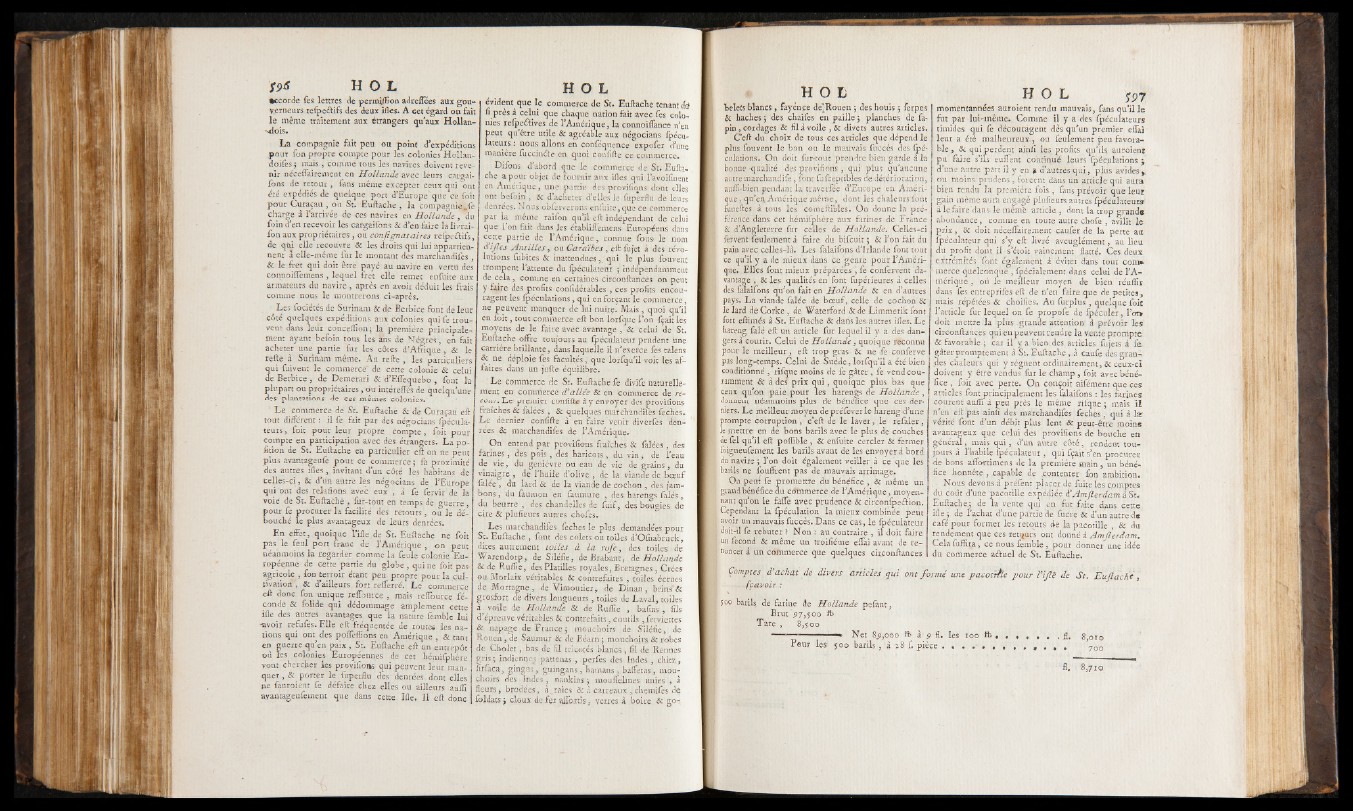 596 HOL
accorde ses lettres de permission adressées aux gou-
verneurs respectifs des deux isles. A cet égard on fait
le même traitement aux étrangers qu'aux Hollan-
dois.
La compagnie fait peu ou point d'expéditions
pour son propre compte pour les colonies Hollan-
doises ; mais, comme tous les navires doivent reve-
nir nécessairement en Hollande avec leurs cargai-
sons de retour, sans même excepter ceux qui ont
été expédiés de quelque port d'Europe que ce soit
pour Curaçau, ou St. Eustache, la compagnie se
charge à l'arrivée de ces navires en Hollande, du
soin d'en recevoir les cargaisons & d'en faire la livrai-
son aux propriétaires, ou consignataires respectifs,
de qui elle recouvre & les droits qui lui appartien-
nent à elle-même sur le montant des marchandises,
& le fret qui doit être payé au navire en vertu des
connoissemens, lequel fret elle remet ensuite aux
armateurs du navire, après en avoir déduit les frais
comme nous le montrerons ci-après.
Les sociétés de Surinam & de Berbice font de leur
côté quelques expéditions aux colonies qui se trou-
vent dans leur concession ; la première principale-
ment ayant besoin tous les ans de Nègres, en fait
acheter une partie sur les côtes d'Afrique, & le
reste à Surinam même. Au reste, les particuliers
qui suivent le commerce de cette colonie & celui
de Berbice, de Demerari & d'Essequebo, sont la
plupart ou propriétaires, ou intéressés de quelqu'une
des plantations de ces mêmes colonies.
Le commerce de St. Eustache & de Curaçau est
tout différent : il se fait par des négocians spécula-
teurs, soit pour leur propre compte, soit pour
compte en participation avec des étrangers. La po-
sition de St. Eustache en particulier est on ne peut
plus avantageuse pour ce commerce ; sa proximité
des autres isles, invitant d'un côté les habitans de
celles-ci, & d'un autre les négocians de l'Europe
qui ont des relations avec eux, à se servir de la
voie de St. Eustache, sur-tout en temps de guerre,
pour se procurer la facilité des retours, ou le dé-
bouché le plus avantageux de leurs denrées.
En effet, quoique l'isle de St. Eustache ne soit
pas le seul port franc de l'Amérique, on peut
néanmoins la regarder comme la seule colonie Eu-
ropéenne de cette partie du globe, qui ne soit pas
agricole, son terroir étant peu propre pour la cul-
évation, & d'ailleurs fort resserré. Le commerce
est donc son unique ressource, mais ressource fé-
conde & solide qui dédommage amplement cette
isle des autres avantages que la nature semble lui
avoir refusés. Elle est fréquentée de toutes les na-
tions qui ont des possessions en Amérique, & tant
en guerre qu'en paix, St. Eustache est un entrepôt
où les colonies Européennes de cet hémisphere
vont chercher les provisions qui peuvent leur man-
quer, & porter le superflu des denrées dont elles
ne sauroient se défaire chez elles ou ailleurs aussi
avantageusement que dans cette Isle. Il est donc
HOL
évident que le commerce de St. Eustache tenant de
si près à celui que chaque nation fait avec ses colo-
nies respectives de l'Amérique, la connoissance n'en
peut qu'être utile & agréable aux négocians spécu-
lateurs : nous allons en conséquence exposer d'une
manière succincte en quoi consiste ce commerce.
Disons d'abord que le commerce de St. Eusta-
che a pour objet de fournir aux isles qui l'avoisinent
en Amérique, une partie des provisions dont elles
ont besoin, & d'acheter d'elles le superflu de leurs
denrées. Nous observerons ensuite, que ce commerce
par la même raison qu'il est indépendant de celui
que l'on fait dans les établissemens Européens dans
cette partie de l'Amérique, connue sous le nom
d'isles Antilles, ou Caraïbes, est sujet à des révo-
lutions subites & inattendues, qui le plus souvent
trompent l'attente du spéculateur ; indépendamment
de cela, comme en certaines circonstances on peut
y faire des profits considérables, ces profits encou-
ragent les spéculations, qui en forçant le commerce,
ne peuvent manquer de lui nuire. Mais, quoi qu'il
en soit, tout commerce est bon lorsque l'on sçait les
moyens de le faire avec avantage, & celui de St.
Eustache offre toujours au spéculateur prudent une
carrière brillante, dans laquelle il n'exerce ses talens
& ne déploie ses facultés, que lorsqu'il voit les af-
faires dans un juste équilibre.
Le commerce de St. Eustache se divise naturelle-
ment en commerce d'allée & en commerce de re-
tour. Le premier consiste à y envoyer des provisions
fraîches & salées, & quelques marchandises seches.
Le dernier consiste à en faire venir diverses den-
rées & marchandises de l'Amérique.
On entend par provisions fraîches & salées, des
farines, des pois, des haricots, du vin, de l'eau
de vie, du genievre ou eau de vie de grains, du
vinaigre, de l'huile d'olive, de la viande de bœuf
salée, du lard & de la viande de cochon, des jam-
bons, du saumon en saumure, des harengs salés,
du beurre, des chandelles de suif, des bougies de
cire & plusieurs autres choses.
Les marchandises seches le plus demandées pour
St. Eustache, sont des colets ou toiles d'Osnabruck,
dites autrement toiles à la rose, des toiles de
Warendorp, de Silésie, de Brabant, de Hollande
& de Russie, des Platilles royales, Bretagnes, Crées
ou Morlaix véritables & contrefaites, toiles écrues
de Mortagne, de Vimoutier, de Dinan, brins &
grosfort de divers longueurs, toiles de Laval, toiles
à voile de Hollande & de Russie, bastas, fils
d'épreuve véritables & contrefaits, coutils, serviettes
& napage de France ; mouchoirs de Silésie, de
Rouen, de Saumur & de Béarn ; mouchoirs & robes
de Cholet, bas de fil retorcés blancs, fil de Rennes
gris ; indiennes pattenas, perses des Indes, chitz,
sirsaca, gingas, guingans, hamans, baffetas, mou-
choirs des Indes, nankins ; mousselines unies, à
fleurs, brodées, à raies & à carreaux, chemises de
soldats ; cloux de fer assortis, verres à boire & go-
HOL
belets blancs, fayence de Rouen ; des houis ; serpes
& haches ; des chaises en paille ; planches de sa-
pin, cordages & fil à voile, & divers autres articles.
C'est du choix de tous ces articles que dépend le
plus souvent le bon ou le mauvais succès des spé-
culations. On doit sur-tout prendre bien garde à la
bonne qualité des provisions, qui plus qu'aucune
autre marchandise, sont susceptibles de détérioration,
aussi-bien pendant la traversée d'Europe en Améri-
que, qu'en Amérique même, dont les chaleurs sont
funestes à tous les comestibles. On donne la pré-
férence dans cet hémisphère aux farines de France
& d'Angleterre sur celles de Hollande. Celles-ci
servent seulement à faire du biscuit ; & l'on fait du
pain avec celles-là. Les salaisons d'Irlande sont tout
ce qu'il y a de mieux dans ce genre pour l'Améri-
que. Elles sont mieux préparées, se conservent da-
vantage, & les qualités en sont supérieures à celles
des salaisons qu'on fait en Hollande & en d'autres
pays. La viande salée de bœuf, celle de cochon &
le lard de Corke, de Waterford & de Limmerik sont
fort estimés à St. Eustache & dans les autres isles. Le
hareng salé est un article sur lequel il y a des dan-
gers à courir. Celui de Hollande, quoique reconnu
pour le meilleur, est trop gras & ne se conserve
pas long-temps. Celui de Suède, lorsqu'il a été bien
conditionné, risque moins de se gâter, se vend cou-
ramment & à des prix qui, quoique plus bas que
ceux qu'on paie pour les harengs de Hollande,
donnent néanmoins plus de bénéfice que ces der-
niers. Le meilleur moyen de préserver le hareng d'une
prompte corruption, c'est de le laver, le resaler,
le mettre en de bons barils avec le plus de couches
de sel qu'il est possible, & ensuite cercler & fermer
soigneusement les barils avant de les envoyer à bord
du navire ; l'on doit également veiller à ce que les
barils ne souffrent pas de mauvais arrimage.
On peut se promettre du bénéfice, & même un
grand bénéfice du commerce de l'Amérique, moyen-
nant qu'on le fasse avec prudence & circonspection.
Cependant la spéculation la mieux combinée peut
avoir un mauvais succès. Dans ce cas, le spéculateur
doit-il se rebuter ? Non : au contraire, il doit faire
un second & même un troisième essai avant de re-
noncer à un commerce que quelques circonstances
HOL 597
momentannées auroient rendu mauvais, sans qu'il le
fut par lui-même. Comme il y a des spéculateurs
timides qui se découragent dès qu'un premier essai
leur a été malheureux, ou seulement peu favora-
ble, & qui perdent ainsi les profits qu'ils auroient
pu faire s'ils eussent continué leurs spéculations ;
d'une autre part il y en a d'autres qui, plus avides,
ou moins prudens, forcent dans un article qui aura
bien rendu la première fois, sans prévoir que leur
gain même aura engagé plusieurs autres spéculateurs
à le faire dans le même article, dont la trop grande
abondance, comme en toute autre chose, avilit le
prix, & doit nécessairement causer de la perte au
spéculateur qui s'y est livré aveuglément, au lieu
du profit dont il s'étoit vainement flatté. Ces deux
extrémités sont également à éviter dans tout com-
merce quelconque, spécialement dans celui de l'A-
mérique, où le meilleur moyen de bien réussir
dans ses entreprises est de n'en faire que de petites,
mais répétées & choisies. Au surplus, quelque soit
l'article sur lequel on se propose de spéculer, l'on
doit mettre la plus grande attention à prévoir les
circonstances qui en peuvent rendre la vente prompte
& favorable ; car il y a bien des articles sujets à se
gâter promptement à St. Eustache, à cause des gran-
des chaleurs qui y règnent ordinairement, & ceux-ci
doivent y être vendus sur le champ, soit avec béné-
fice, soit avec perte. On conçoit aisément que ces
articles sont principalement les salaisons : les farines
courent aussi à peu près le même risque ; mais il
n'en est pas ainsi des marchandises seches, qui à la
vérité sont d'un débit plus lent & peut-être moins
avantageux que celui des provisions de bouche en
général, mais qui, d'un autre côté, rendent tou-
jours à l'habile spéculateur, qui sçait s'en procurer
de bons assortimens de la première main, un béné-
fice honnête, capable de contenter son ambition.
Nous devons à présent placer de suite les comptes
du coût d'une pacotille expédiée d'Amsterdam à St.
Eustache ; de la vente qui en fut faite dans cette
isle ; de l'achat d'une partie de sucre & d'un autre de
café pour former les retours de la pacotille, & du
rendement que ces retours ont donné à Amsterdam.
Cela suffira, ce nous semble, pour donner une idée
du commerce actuel de St. Eustache.
Comptes d'achat de divers articles qui ont formé une pacotille pour l'isle de St. Eustache,
sçavoir :
500 barils de farine de Hollande pesant,
Brut 97,500 ℔
Tare, 8,500
Net 89,000 ℔ à 9 fl. les 100 ℔ . . . . . . . fl. 8,010
Pour les 500 barils, à 28 s. pièce . . . . . . . . . . . 700
fl. 8,710